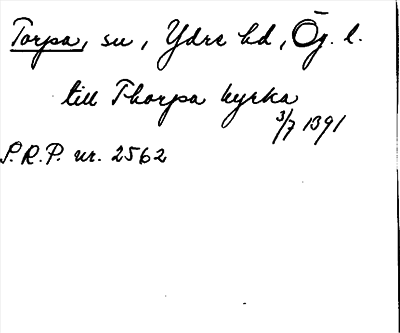 Torpa, su, Ydre hd, Ög. l.
till Thorpa kyrka
3/7 1391
S.R.P. nr. 2562